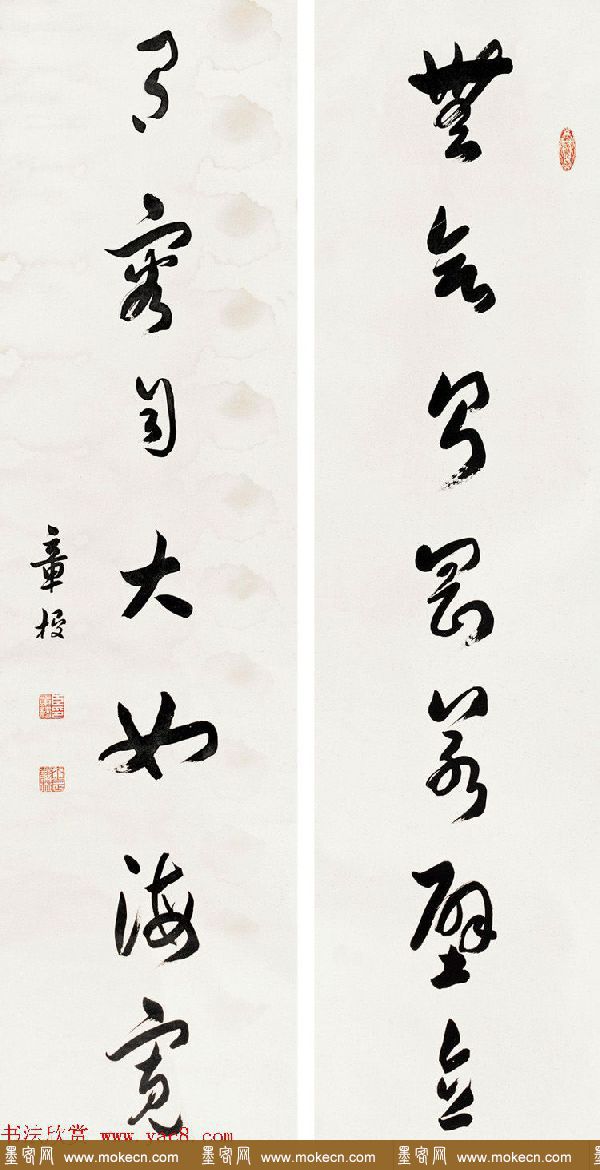 無欲剛若壁立
有容大如海寬
章梫
书法欣赏 www.yac8.com
墨客网 www.mokecn.com 墨客网 www.mokecn.com 墨客网 www.mokecn.com